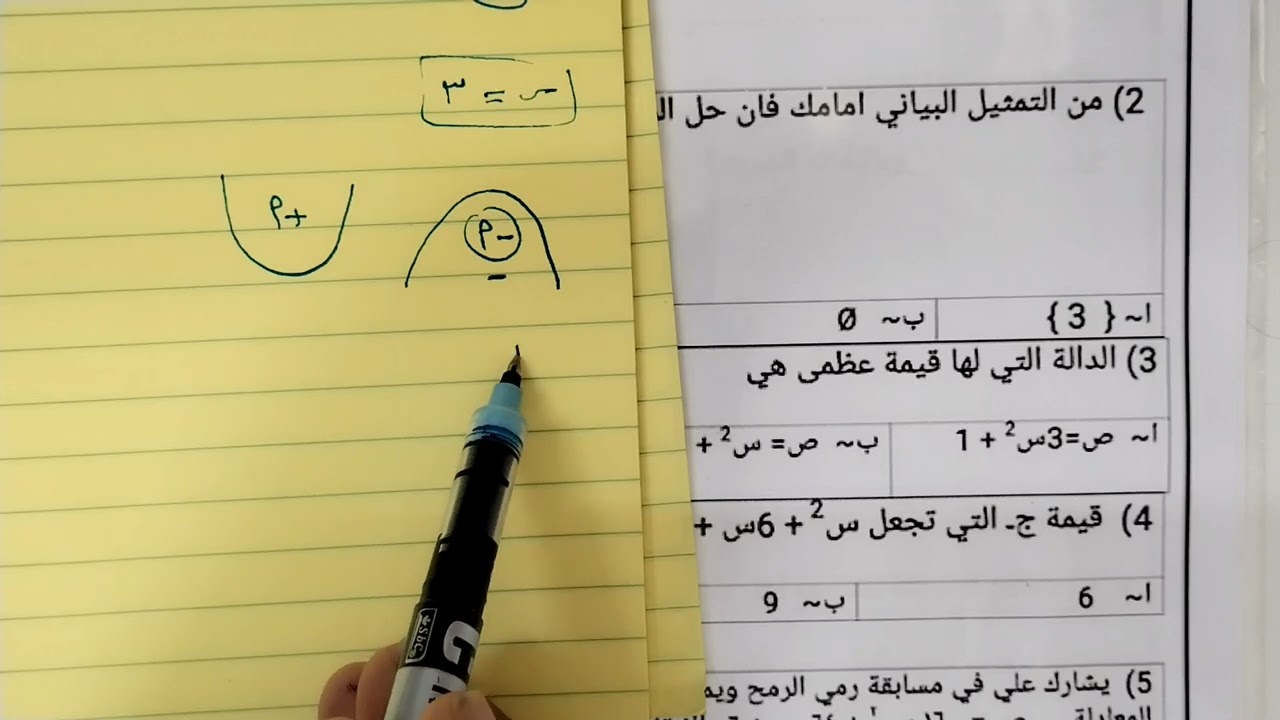 س = ٣
+ م
- م
-
2) من التمثيل البياني امامك فان حل
ا~ { 3 } ب~ Ø
3) الدالة التي لها قيمة عظمى هي
ا~ ص=3س² + 1 ب~ ص= س² +
4) قيمة جـ التي تجعل س² + 6س +
ا~ 6 ب~ 9
5) يشارك علي في مسابقة رمي الرمح
المعادلة